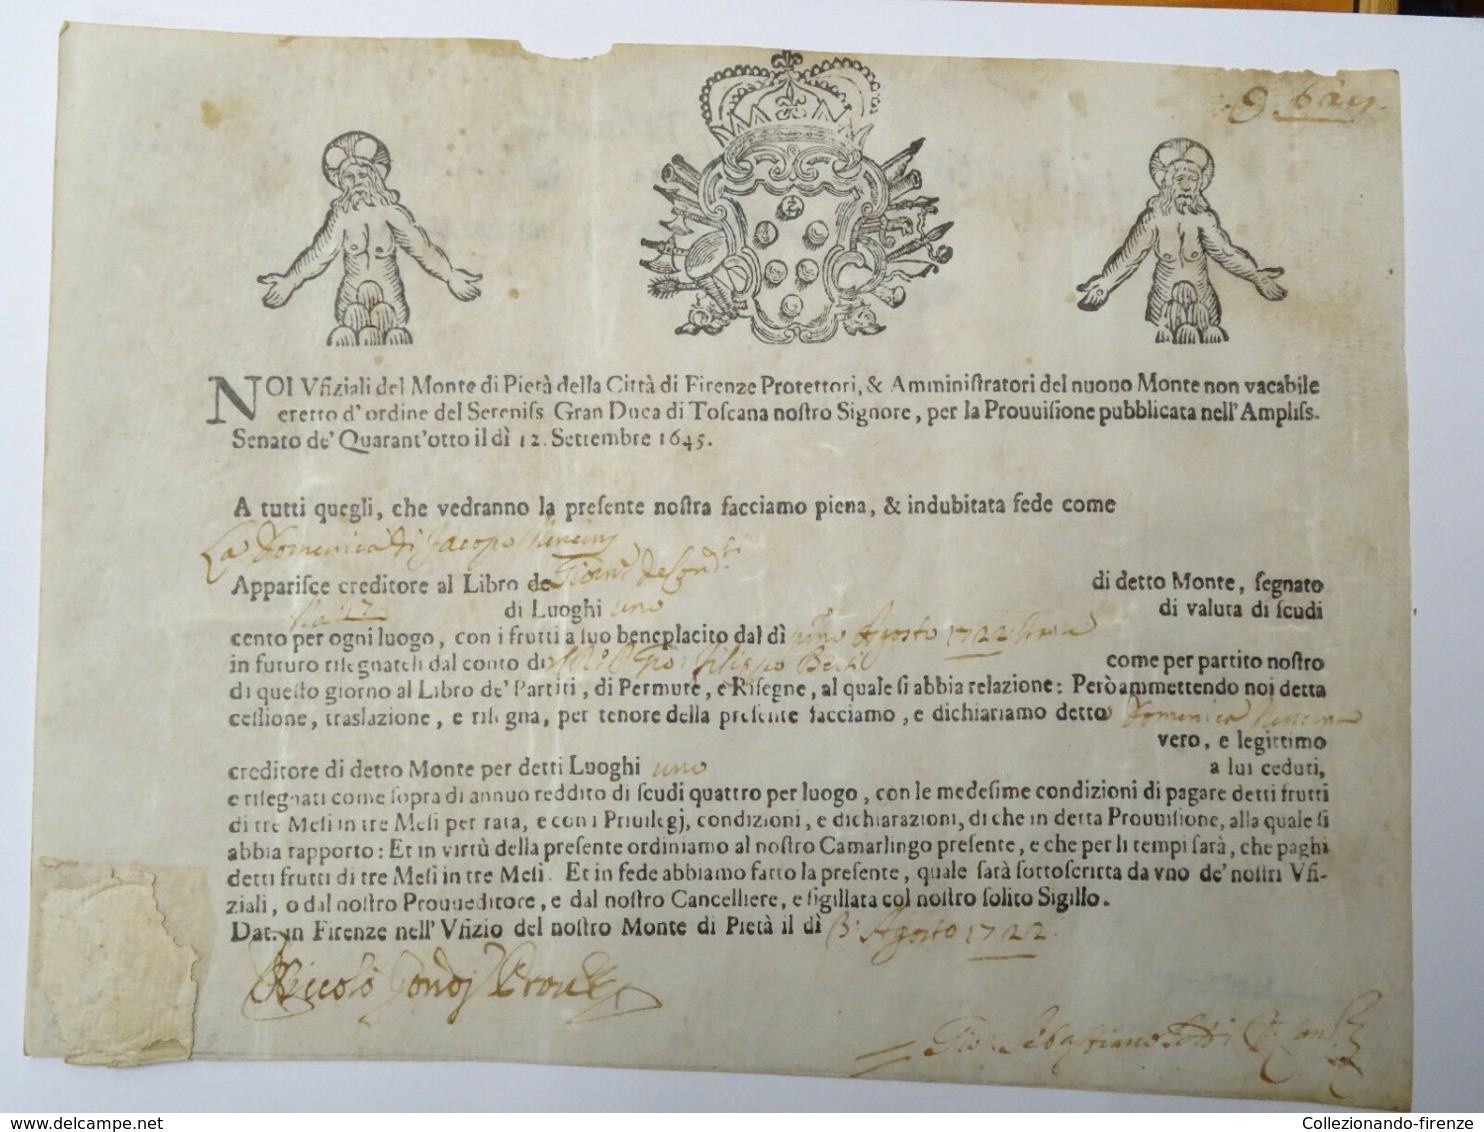 NOI Vfiziali del Monte di Pietà della Città di Firenze Protettori, & Amminiſtratori del nuouo Monte non vacabile
eretto d'ordine del Sereniſs Gran Duca di Toſcana noſtro Signore, per la Prouuiſione pubblicata nell'Ampliſs.
Senato de' Quarant'otto il dì 12. Settembre 1645.
A tutti quegli, che vedranno la preſente noſtra facciamo piena, & indubitata fede come
La Domenica di Jacopo
Appariſce creditore al Libro de di detto Monte, ſegnato
di Luoghi uno di valuta di ſcudi
cento per ogni luogo, con i frutti a ſuo beneplacito dal dì Agosto 1722
in futuro riſegnateli dal conto di Gio: Filippo come per partito noſtro
di queſto giorno al Libro de' Partiti, di Permute, e Riſegne, al quale ſi abbia relazione: Però ammettendo noi detta
ceſſione, traslazione, e riſegna, per tenore della preſente facciamo, e dichiariamo detto Domenica
vero, e legittimo
creditore di detto Monte per detti Luoghi uno a lui ceduti,
e riſegnati come ſopra di annuo reddito di ſcudi quattro per luogo, con le medeſime condizioni di pagare detti frutti
di tre Meſi in tre Meſi per rata, e con i Priuilegj, condizioni, e dichiarazioni, di che in detta Prouuiſione, alla quale ſi
abbia rapporto: Et in virtù della preſente ordiniamo al noſtro Camarlingo preſente, e che per li tempi ſarà, che paghi
detti frutti di tre Meſi in tre Meſi. Et in fede abbiamo fatto la preſente, quale ſarà ſottoſcritta da vno de' noſtri Vfi-
ziali, o dal noſtro Prouueditore, e dal noſtro Cancelliere, e ſigillata col noſtro ſolito Sigillo.
Dat. in Firenze nell' Vfizio del noſtro Monte di Pietà il dì 3 Agosto 1722
Niccolò Gondj
Gio: Sebastiano
delcampe.net
Collezionando-firenze